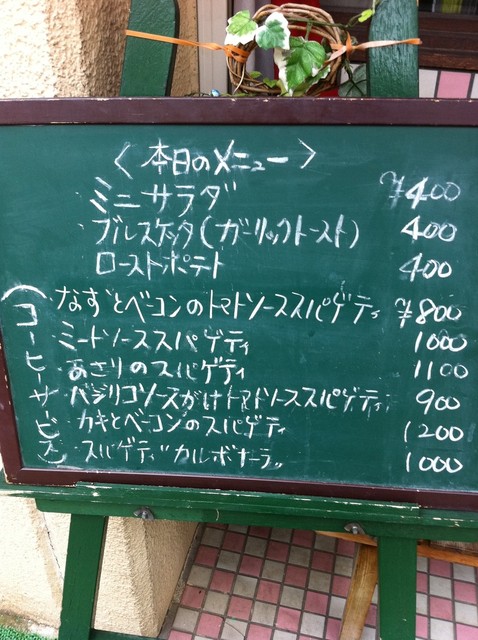 〈本日のメニュー〉
・ミニサラダ ¥400
・ブルスケッタ(ガーリックトースト) 400
ローストポテト 400
・なすとベーコンのトマトソーススパゲティ ¥800
・ミートソーススパゲティ 1000
・あさりのスパゲティ 1100
・バジリコソースがけトマトソーススパゲティ 900
・カキとベーコンのスパゲティ 1200
・スパゲティ"カルボナーラ" 1000
(コーヒーサービス)